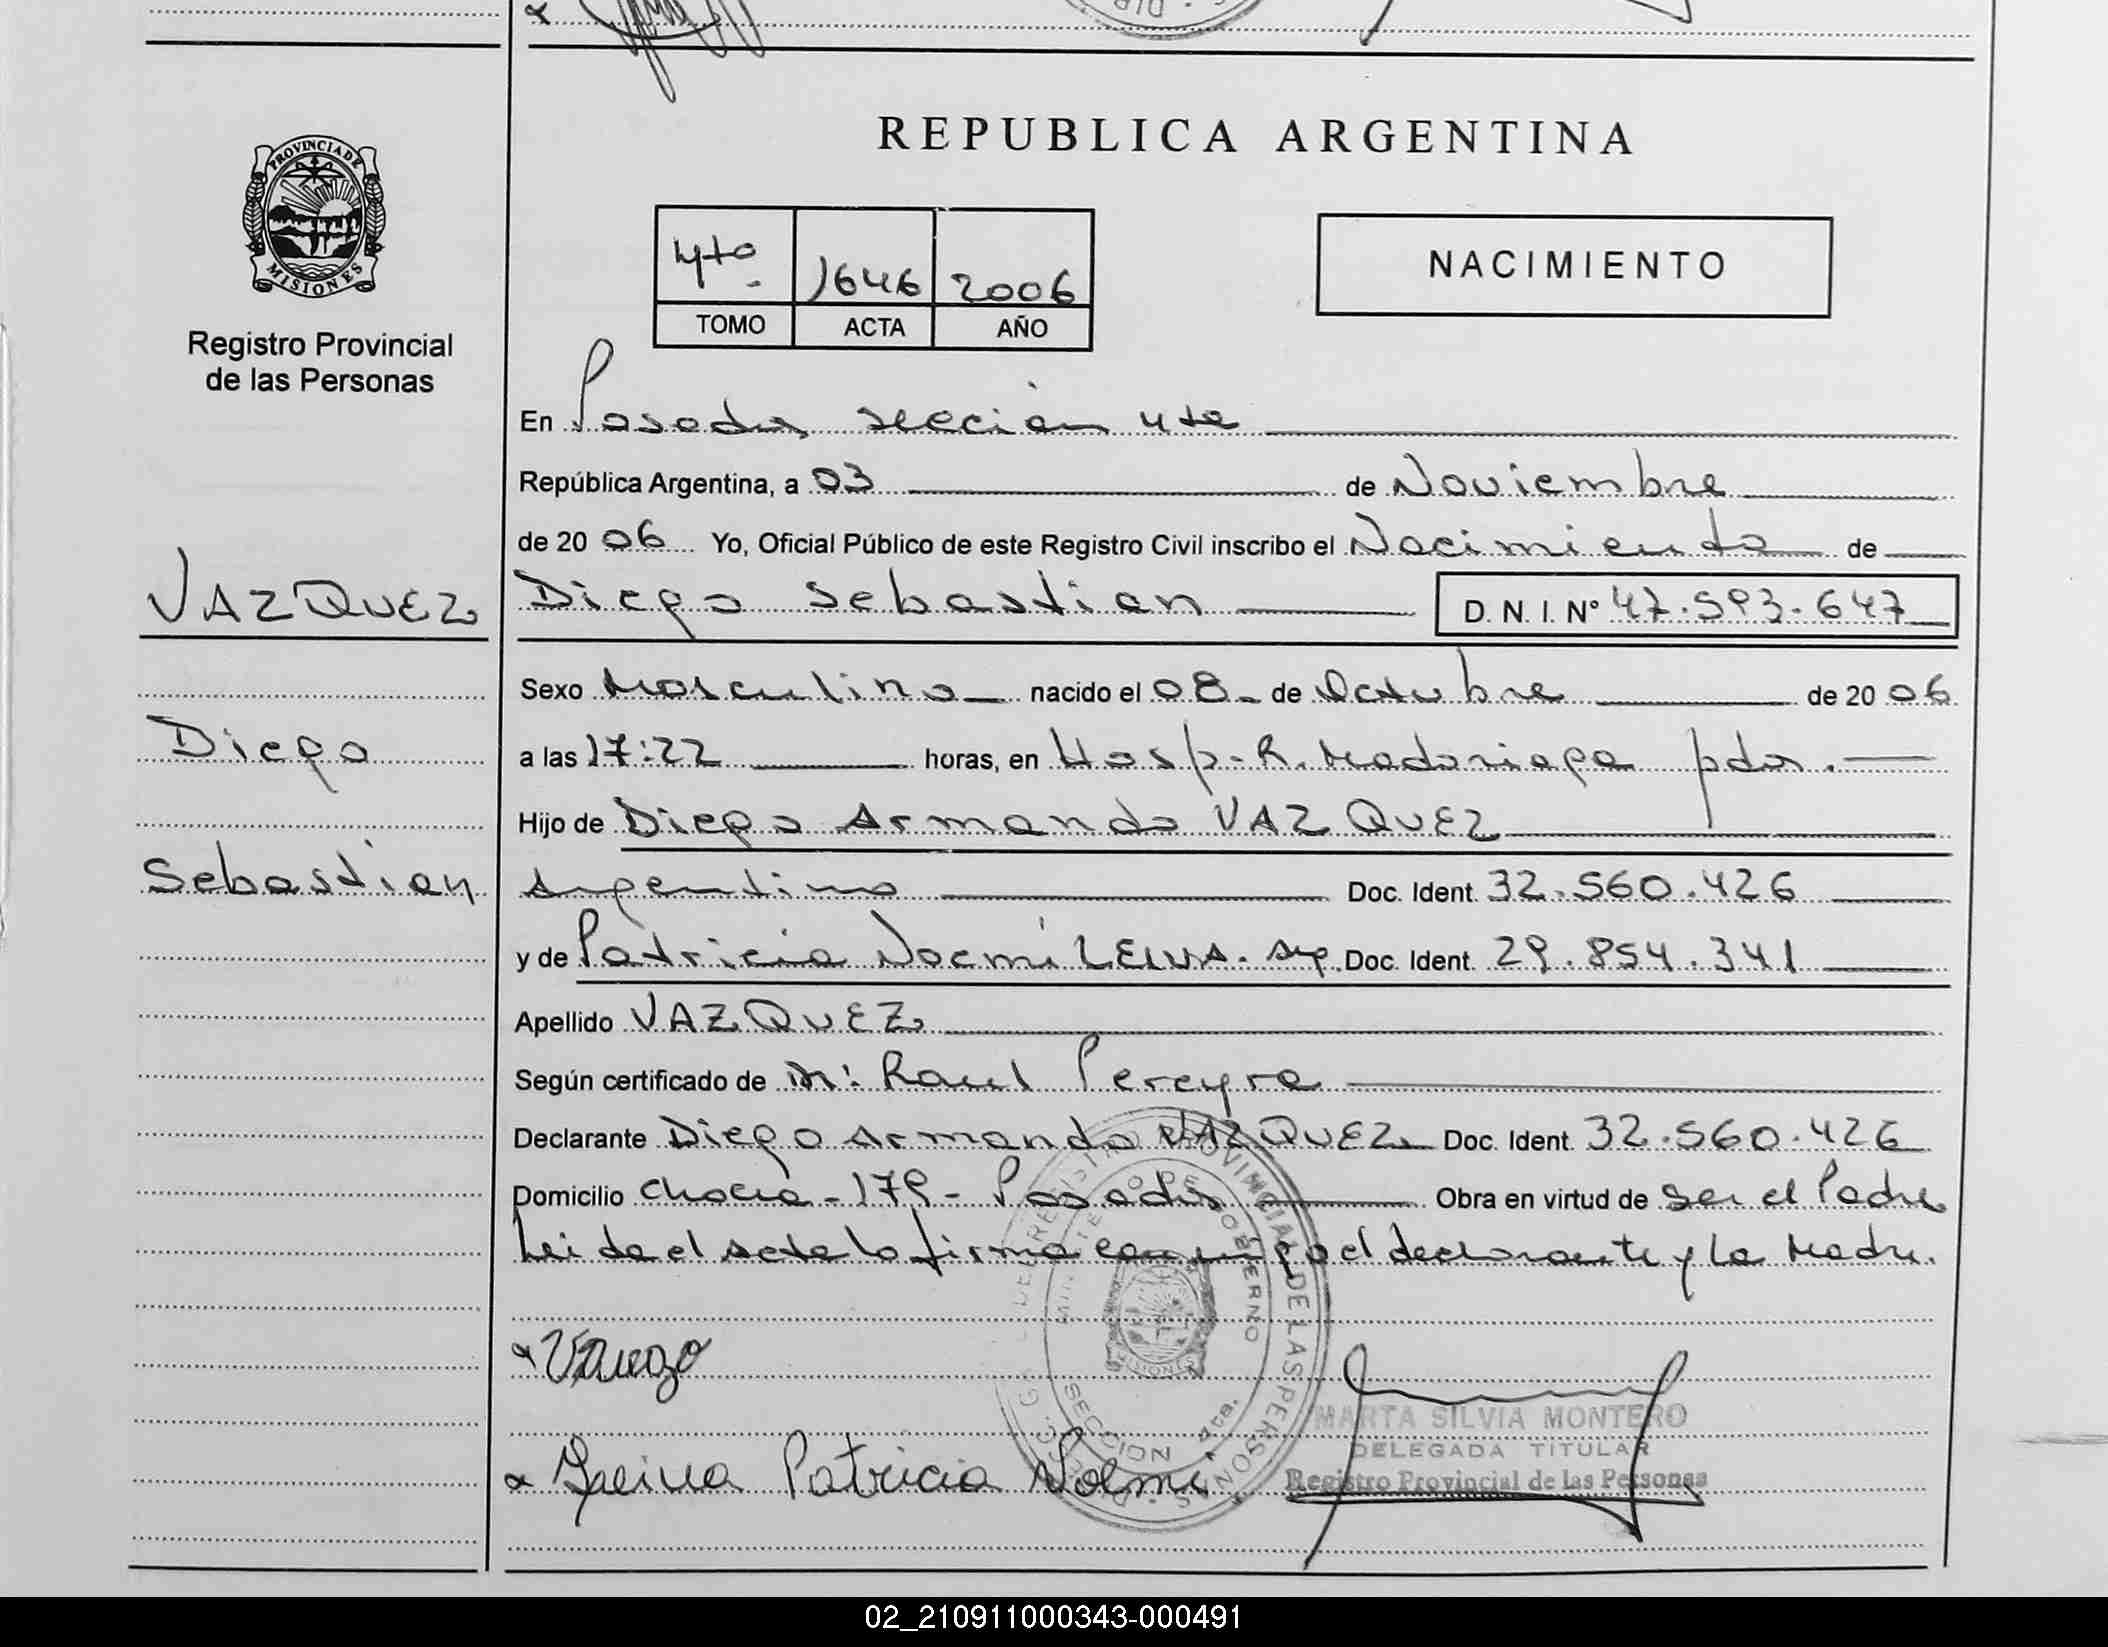 PROVINCIA DE
MISIONES
Registro Provincial
de las Personas
VAZQUEZ
Diego
Sebastian
REPUBLICA ARGENTINA
4to. 1646 2006
TOMO ACTA AÑO
NACIMIENTO
En Posadas sección 4ta
República Argentina, a 03 de Noviembre
de 20 06 Yo, Oficial Público de este Registro Civil inscribo el Nacimiento de
Diego Sebastian D. N. I. Nº 47.593.647
Sexo Masculino nacido el 08 de Octubre de 20 06
a las 17:22 horas, en Hosp. R. Madariaga pdas.
Hijo de Diego Armando VAZQUEZ
Argentino Doc. Ident. 32.560.426
y de Patricia Noemí LEIVA. Arg. Doc. Ident. 29.854.341
Apellido VAZQUEZ
Según certificado de Raul Pereyra
Declarante Diego Armando VAZQUEZ Doc. Ident. 32.560.426
Domicilio - 179 - Posadas Obra en virtud de ser el Padre
Leida el acta la firma conmigo el declarante y la Madre.
REGISTRO PROVINCIAL DE LAS PERSONAS
MINISTERIO DE GOBIERNO
MISIONES
SECCION 4ta.
Leiva Patricia Noemi
MARTA SILVIA MONTERO
DELEGADA TITULAR
Registro Provincial de las Personas
02_210911000343-000491